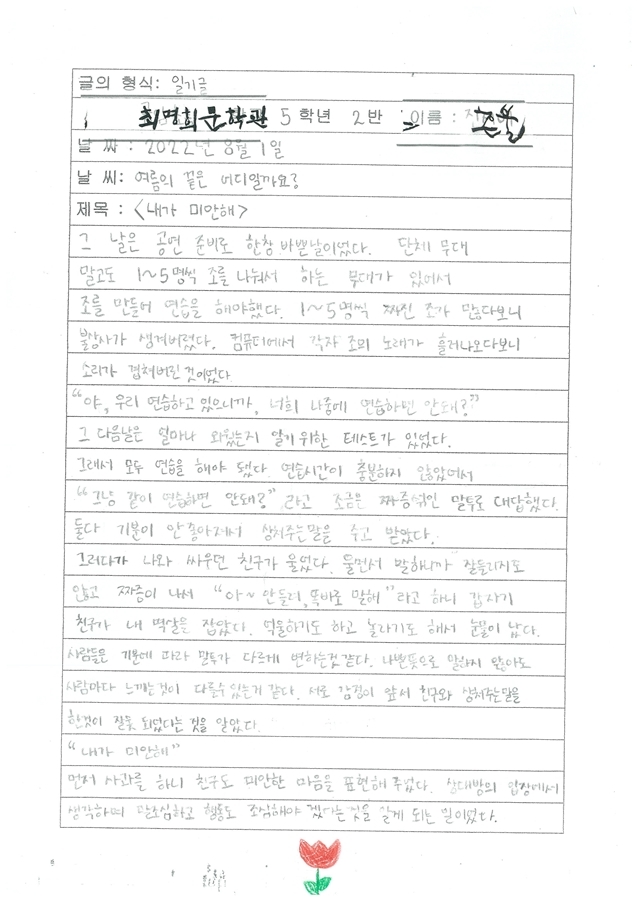 글의 형식: 일기글
최명희문학관 5학년 2반 이름 :
날 짜 : 2022년 8월 1일
날 씨: 여름의 끝은 어디일까요?
제목 : <내가 미안해>
그 날은 공연 준비로 한창 바쁜날이었다. 단체 무대
말고도 1~5명씩 조를 나눠서 하는 무대가 있어서
조를 만들어 연습을 해야했다. 1~5명씩 짜진 조가 많다보니
불상사가 생겨버렸다. 컴퓨터에서 각자 조의 노래가 흘러나오다보니
소리가 겹쳐버린 것이었다.
"야, 우리 연습하고 있으니까, 너희 나중에 연습하면 안돼?"
그 다음날은 얼마나 외웠는지 알기 위한 테스트가 있었다.
그래서 모두 연습을 해야 됐다. 연습시간이 충분하지 않았어서
"그냥 같이 연습하면 안돼?" 라고 조금은 짜증섞인 말투로 대답했다.
둘다 기분이 안좋아져서 상처주는말을 주고 받았다.
그러다가 나와 싸우던 친구가 울었다. 울면서 말하니까 잘들리지도
않고 짜증이 나서 "아~ 안들려, 똑바로 말해" 라고 하니 갑자기
친구가 내 멱살을 잡았다. 억울하기도 하고 놀라기도 해서 눈물이 났다.
사람들은 기분에 따라 말투가 다르게 변하는것 같다. 나쁜뜻으로 말하지 않아도
사람마다 느끼는것이 다를수 있는거 같다. 서로 감정이 앞서 친구와 상처주는말을
한것이 잘못 되었다는 것을 알았다.
"내가 미안해"
먼저 사과를 하니 친구도 미안한 마음을 표현해 주었다. 상대방의 입장에서
생각하며 말조심하고 행동도 조심해야 겠다는 것을 알게 되는 일이었다.